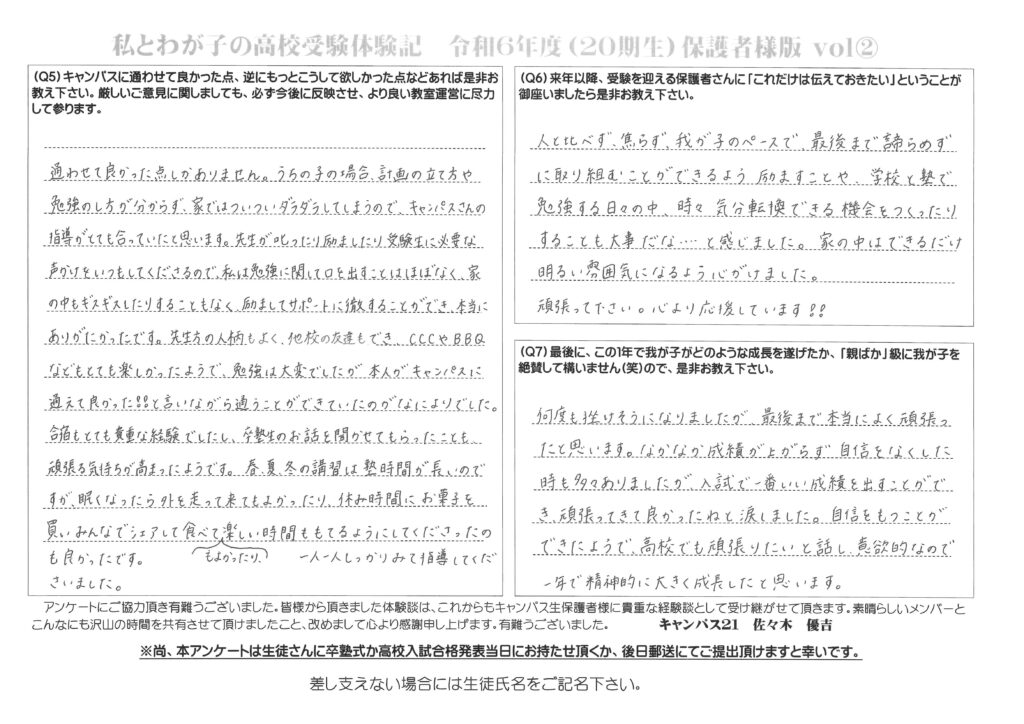 私とわが子の高校受験体験記 令和6年度(20期生)保護者様版 vol②
(Q5)キャンパスに通わせて良かった点、逆にもっとこうして欲しかった点などあれば是非お
教え下さい。厳しいご意見に関しましても、必ず今後に反映させ、より良い教室運営に尽力
して参ります。
通わせて良かった点しかありません。うちの子の場合、計画の立て方や
勉強のし方が分からず、家ではついついダラダラしてしまうので、キャンパスさんの
指導がとても合っていたと思います。先生が叱ったり励ましたり受験生に必要な
声かけをいつもしてくださるので、私は勉強に関して口を出すことはほぼなく、家
の中もギスギスしたりすることもなく、励ましてサポートに徹することができ、本当に
ありがたかったです。先生方の人柄もよく、他校の友達もでき、CCCやBBQ
などもとても楽しかったようで、勉強は大変でしたが本人がキャンパスに
通えて良かった!!と言いながら通うことができていたのがなによりでした。
合宿もとても貴重な経験でしたし、卒塾生のお話を聞かせてもらったことも、
頑張る気持ちが高まったようです。春、夏、冬の講習は塾時間が長いので
すが、眠くなったら外を走って来てもよかったり、休み時間にお菓子を
買いみんなでシェアして食べて楽しい時間ももてるようにしてくださったの
も良かったです。 もよかったり、 一人一人しっかりみて指導してくだ
さいました。
(Q6)来年以降、受験を迎える保護者さんに「これだけは伝えておきたい」ということが
御座いましたら是非お教え下さい。
人と比べず、焦らず、我が子のペースで、最後まで諦らめず
に取り組むことができるよう励ますことや、学校と塾で
勉強する日々の中、時々気分転換できる機会をつくったり
することも大事だな‥‥と感じました。家の中はできるだけ
明るい雰囲気になるよう心がけました。
頑張って下さい。心より応援しています!!
(Q7)最後に、この1年で我が子がどのような成長を遂げたか、「親ばか」級に我が子を
絶賛して構いません(笑)ので、是非お教え下さい。
何度も挫けそうになりましたが、最後まで本当によく頑張っ
たと思います。なかなか成績が上がらず自信をなくした
時も多々ありましたが、入試で一番いい成績を出すことがで
き、頑張ってきて良かったねと涙しました。自信をもつことが
できたようで、高校でも頑張りたいと話し、意欲的なので
一年で精神的に大きく成長したと思います。
アンケートにご協力頂き有難うございました。皆様から頂きました体験談は、これからもキャンパス生保護者様に貴重な経験談として受け継がせて頂きます。素晴らしいメンバーと
こんなにも沢山の時間を共有させて頂けましたこと、改めまして心より感謝申し上げます。有難うございました。 キャンパス21 佐々木 優吉
※尚、本アンケートは生徒さんに卒塾式か高校入試合格発表当日にお持たせ頂くか、後日郵送にてご提出頂けますと幸いです。
差し支えない場合には生徒氏名をご記名下さい。